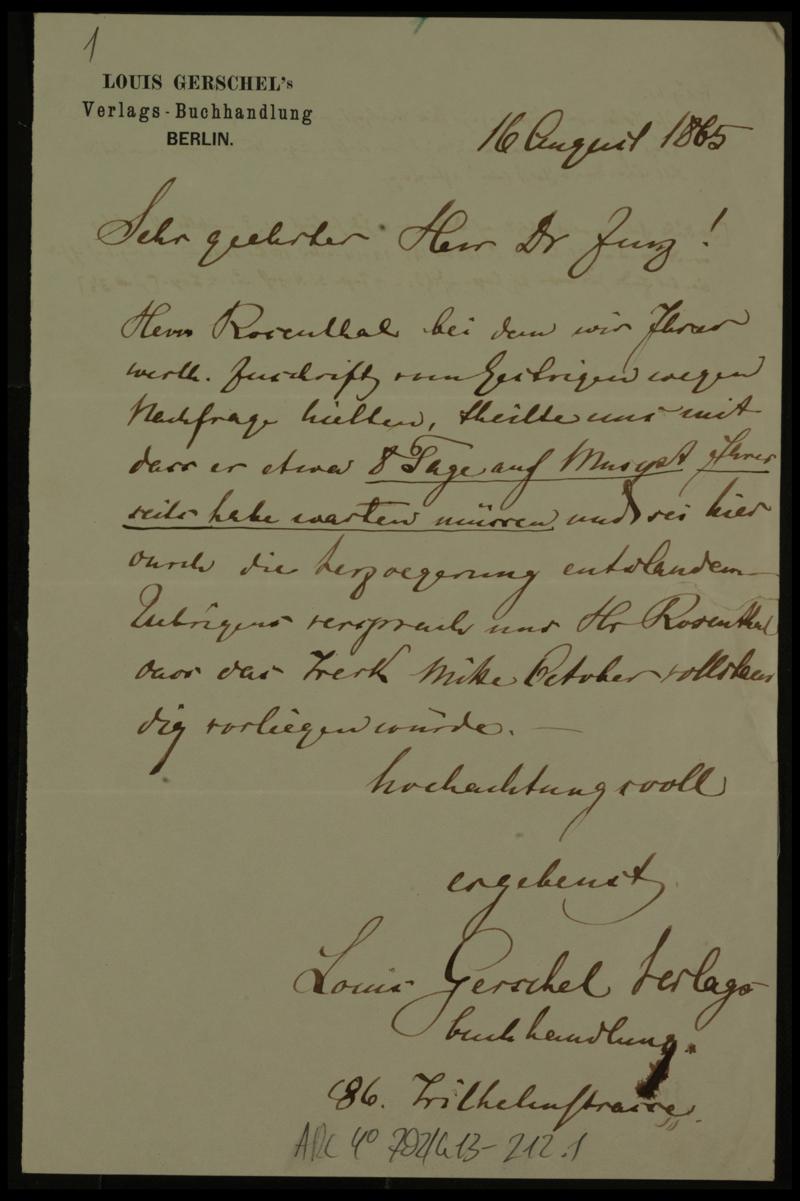 1
LOUIS GERSCHEL's
Verlags-Buchhandlung
BERLIN.
16 August 1865
Sehr geehrter Herr Dr Zunz!
Herr Rosenthal bei dem wir Ihrer
werth. Zuschrift vom Gestrigen wegen
Nachfrage hielten, theilte uns mit
dass er etwa 8 Tage auf Muscpt Ihrer
seits habe warten müssen und sei hier
durch die Verzoegerung entstanden
Uebrigens versprach uns Hr Rosenthal
dass das Werk Mitte October vollstaen
dig vorliegen würde. —
hochachtungsvoll
ergebenst
Louis Gerschel Verlags
buchhandlung.
86. Wilhelmstrasse.
ARC 4° 792/G13-212.1